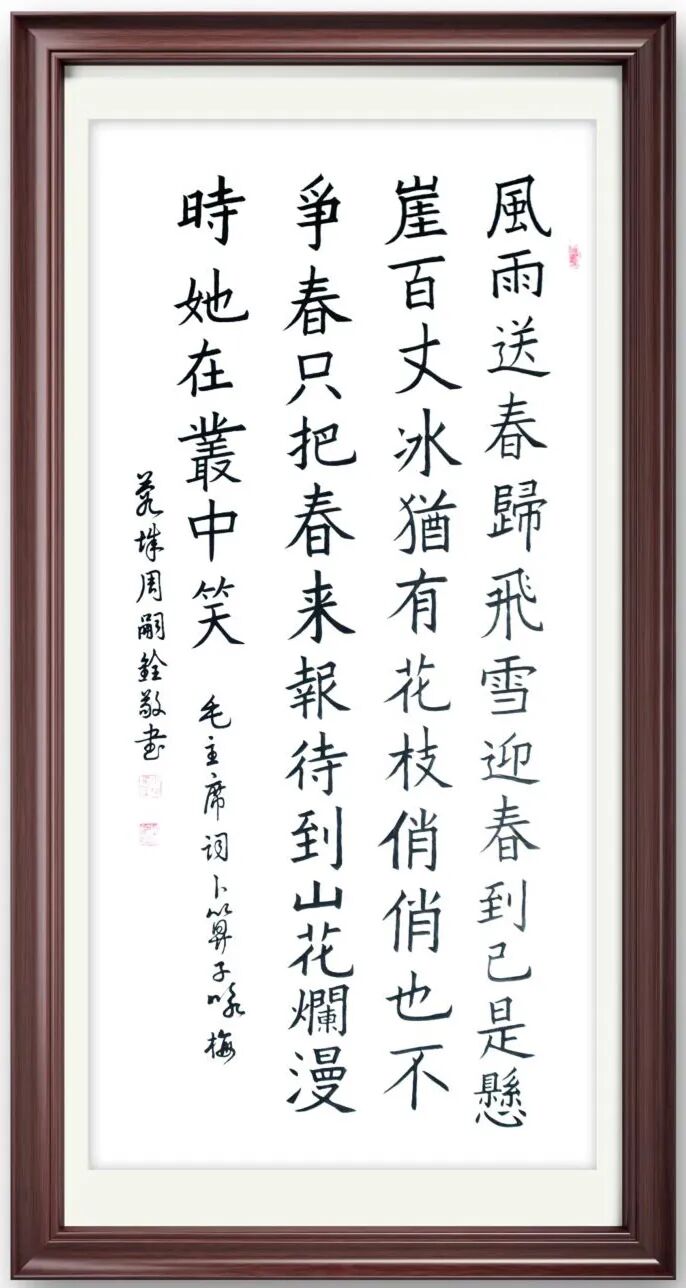 風雨送春歸飛雪迎春到已是懸
崖百丈冰猶有花枝俏俏也不
爭春只把春来報待到山花爛漫
時她在叢中笑
毛主席词卜算子咏梅
周嗣銓敬书